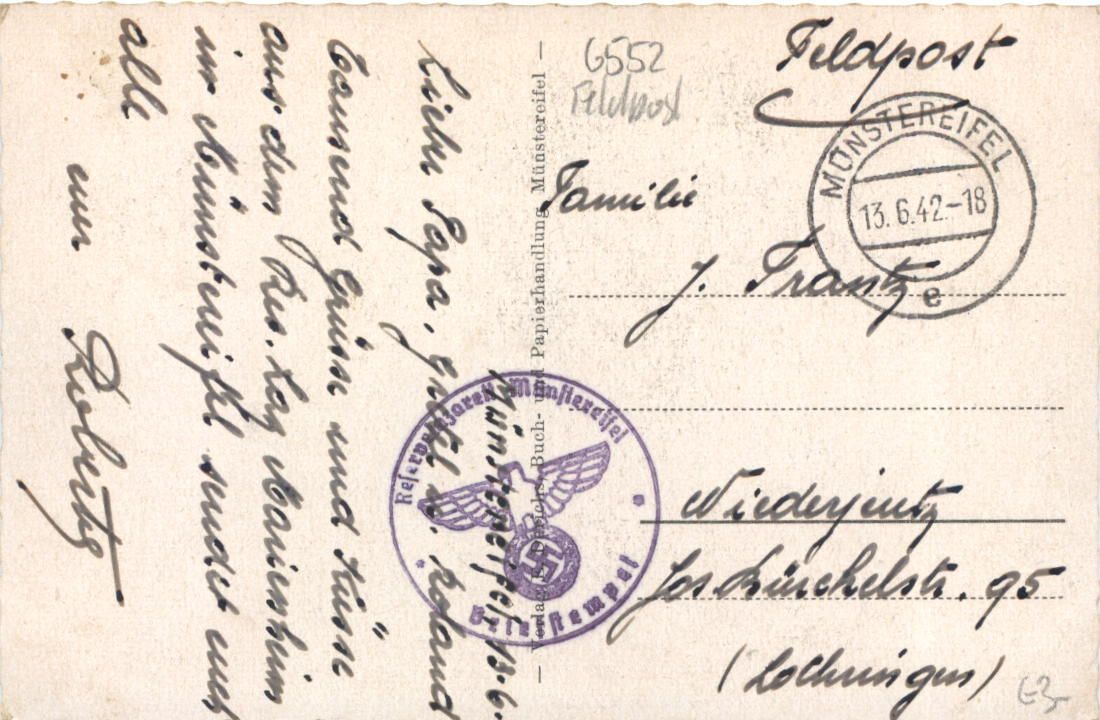 Feldpost
6552
Feldpost
MÜNSTEREIFEL
13.6.42.-18
e
Familie
J. Frantz
Niederjeutz
Jos Bürckelstr. 95
(Lothringen)
E3-
— Verlag F. Derichs, Buch- und Papierhandlung, Münstereifel —
Reservelazarett Münstereifel
Briefstempel
Münstereifel, 13.6.
Lieber Papa, Gretel u. Roland
Tausend Grüsse und Küsse
aus dem Res. Laz Marienheim
in Münstereifel sendet euch
alle
euer Robert